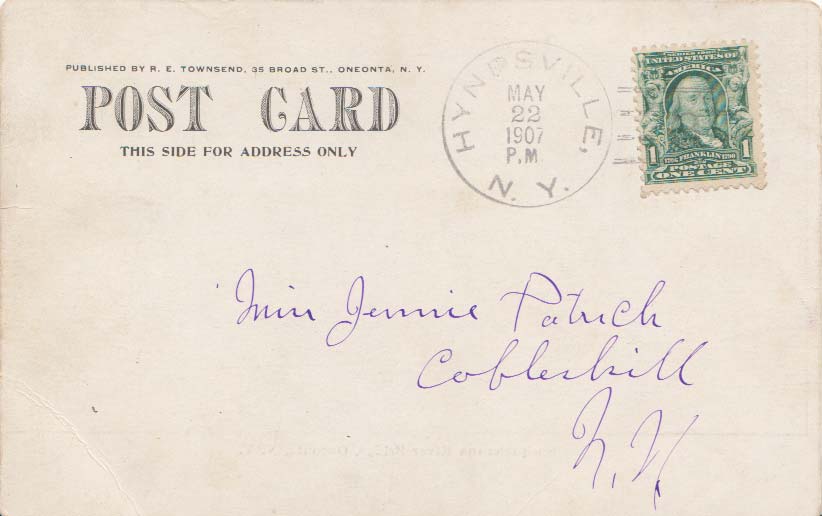 PUBLISHED BY R. E. TOWNSEND, 35 BROAD ST., ONEONTA, N. Y.
POST CARD
THIS SIDE FOR ADDRESS ONLY
HYNDSVILLE, N. Y.
MAY
22
1907
P.M
SERIES 1902
UNITED STATES OF
AMERICA
1 1706 FRANKLIN 1790 1
POSTAGE
ONE CENT
Miss Jennie Patrick
Cobleskill
N. Y.